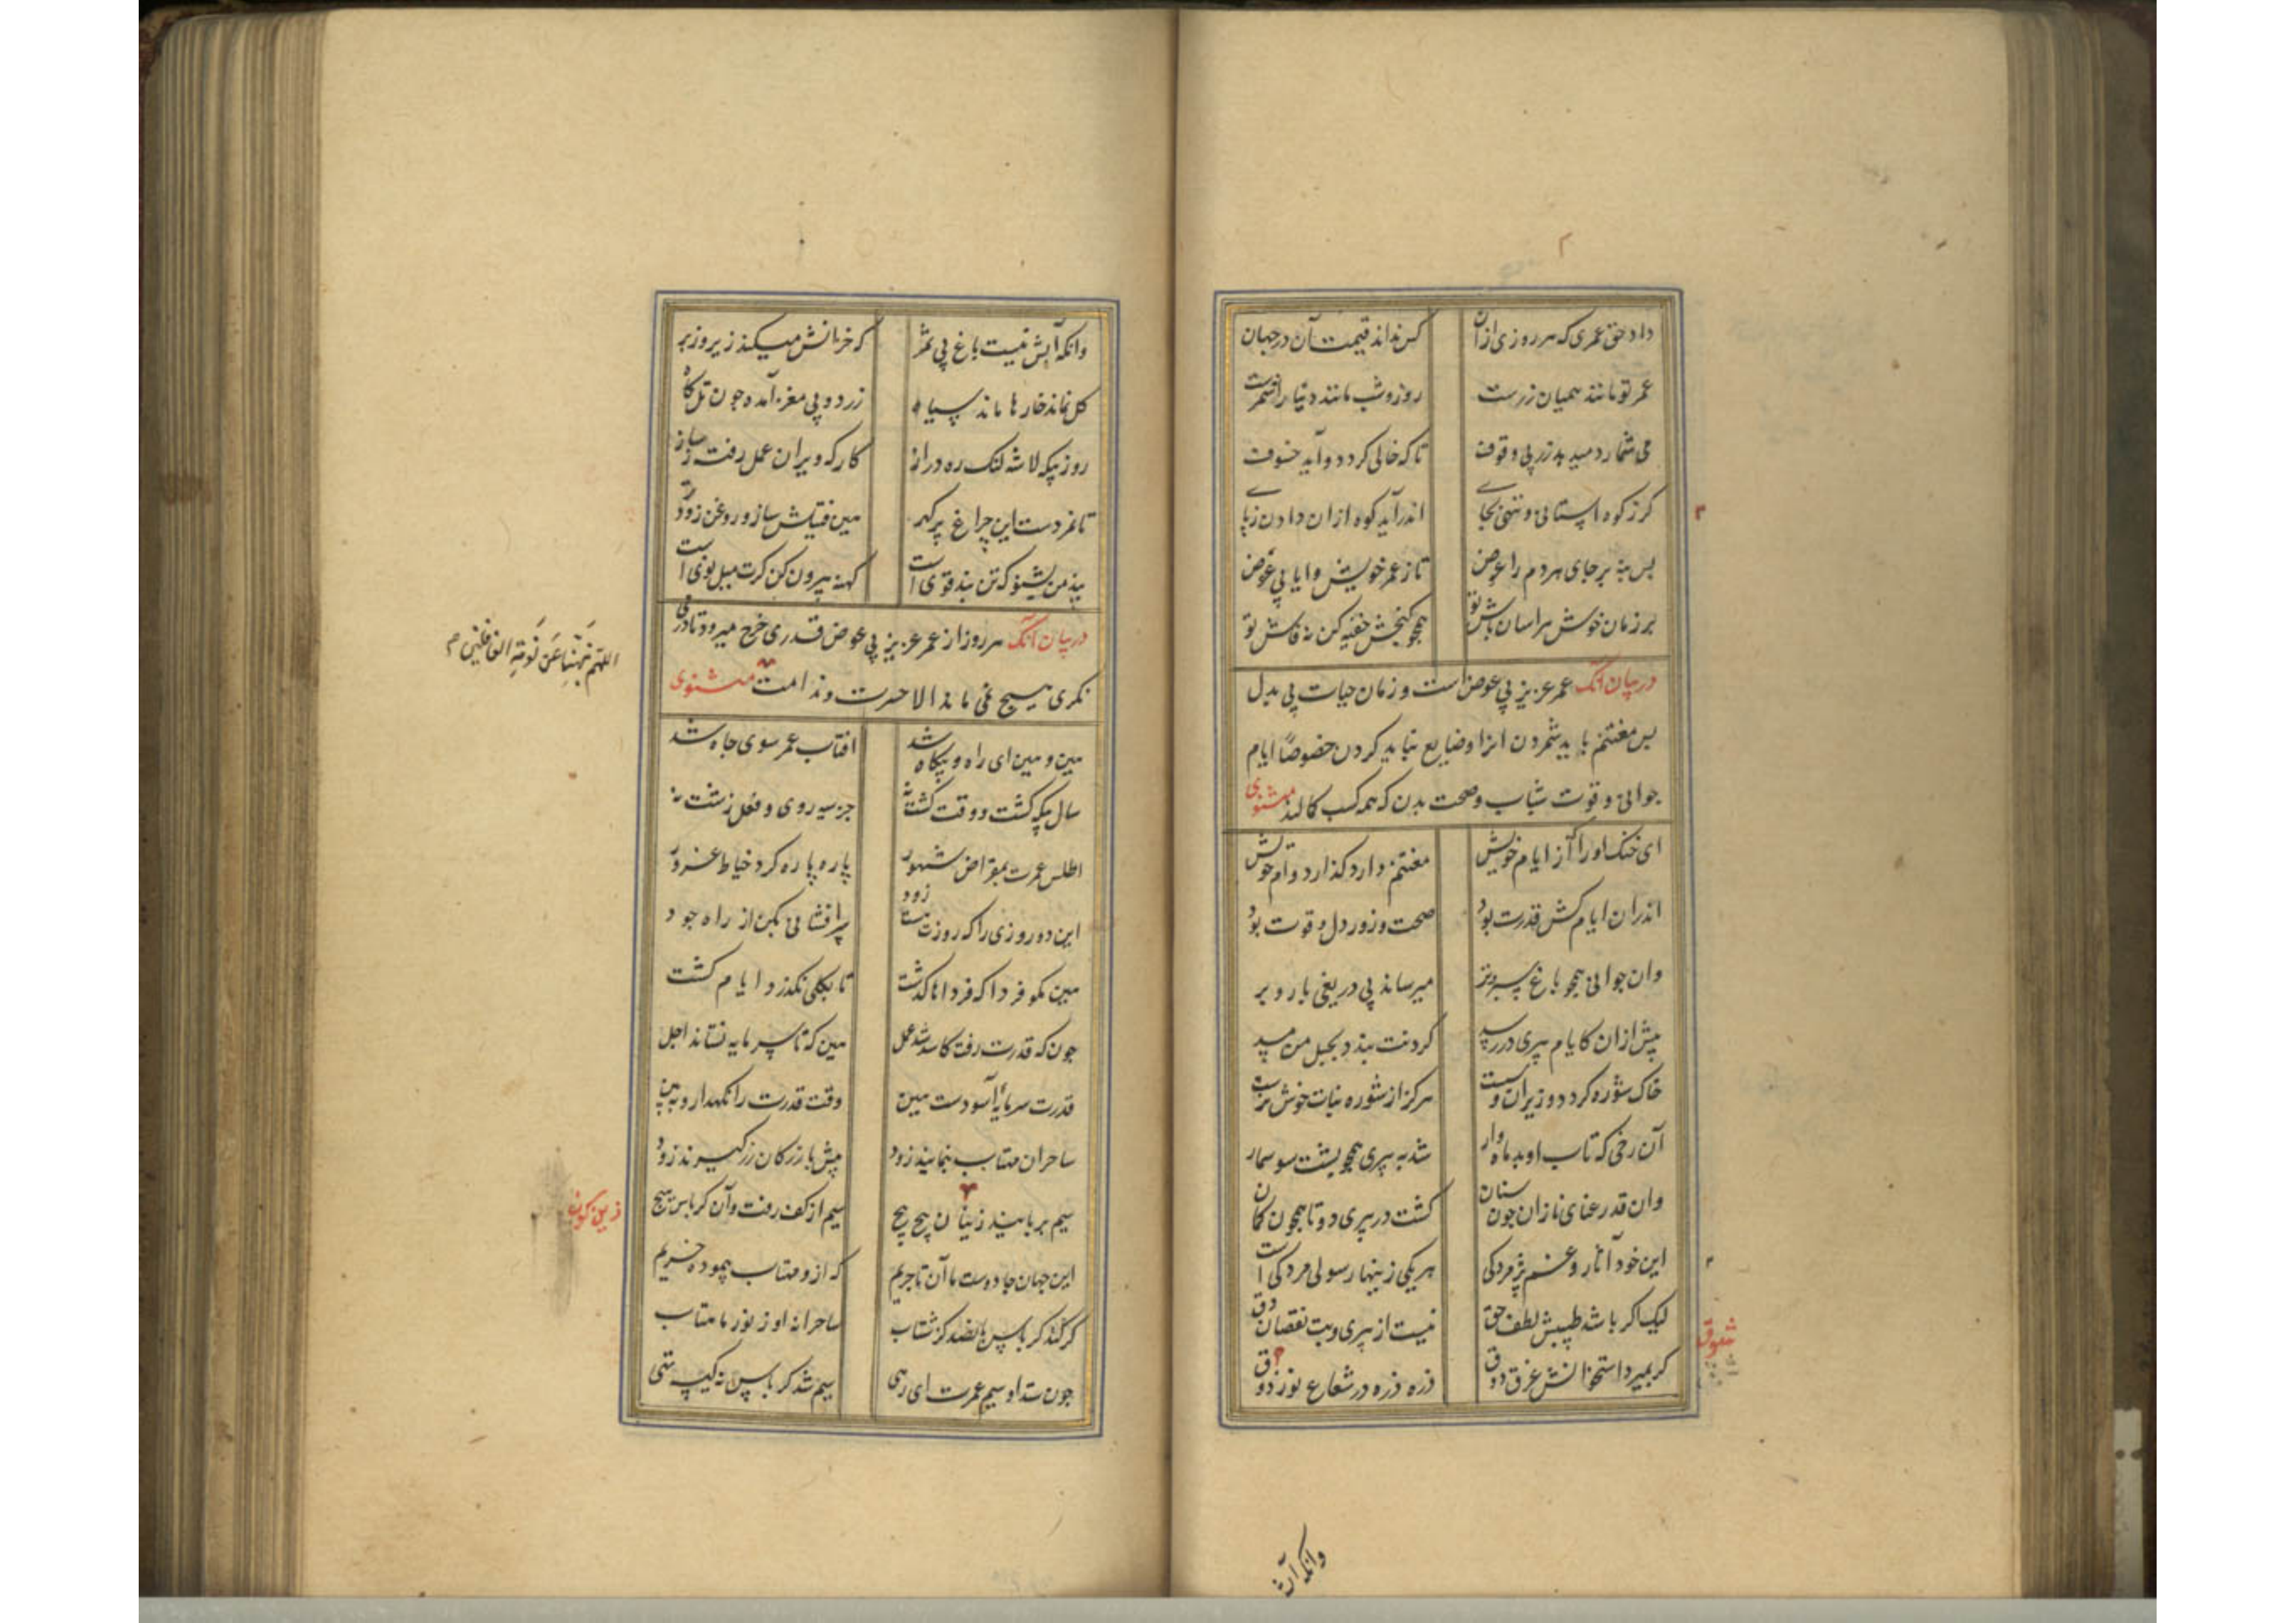 داد حق عمری که هر روزی از آن
کس نداند قیمت آن در جهان
عمر تو مانند همیان زرست
روز و شب مانند دینار اشمرست
می شمارد میدهد زر بی وقوف
تا که خالی گردد و آید خسوف
گر ز کوه استانی و ننهی بجای
اندر آید کوه از ان دادن ز پای
پس بنه بر جای هر دم را عوض
تا ز عمر خویش وا یابی عوض
بر زمان خوش هراسان باش تو
همچو گنجش خفیه کن نه فاش تو
در بیان آنک عمر عزیز بی عوض است و زمان حیات بی بدل
پس مغتنم باید شمردن انرا و ضایع نباید کردن خصوصا ایام
جوانی و قوت شباب و صحت بدن که همه کسب کالند مثنوی
ای خنک او را که از ایام خویش
مغتنم دارد گذارد وام خویش
اندران ایام کش قدرت بود
صحت و زور دل و قوت بود
وان جوانی همچو باغ سبز و تر
میرساند بی دریغی بار و بر
پیش از ان کایام پیری در رسد
گردنت بندد بحبل من مسد
خاک شوره گردد و ریزان و سست
هرگز از شوره نبات خوش نرست
آن رخی که تاب او بد ماه وار
شد به پیری همچو پشت سوسمار
وان قد رعنای نازان چون سنان
گشت در پیری دو تا همچون کمان
این خود آثار و غم پژمردگی
هر یکی زینها رسول مردگی است
لیک اگر باشد طبیبش لطف حق
نیست از پیری و تب نقصان و دق
گر بمیرد استخوانش غرق ذوق
ذره ذره در شعاع نور ذوق
شوق
وانکه آن
وانکه آبش نیست باغ بی ثمر
که خزانش میکند زیر و زبر
گل نماند خارها ماند سیاه
زرد و بی مغز آمده چون تل کاه
روز بیگه لاشه لنگ و ره دراز
کارگه ویران عمل رفته ز ساز
تا نمردست این چراغ پرگهر
هین فتیلش ساز و روغن زودتر
پند من بشنو که تن بند قوی است
کهنه بیرون کن گرت میل نوی است
در بیان آنک هر روز از عمر عزیز بی عوض قدری خرج میرود تا درنگی
نگری هیچ نمی ماند الا حسرت و ندامت مثنوی
اللهم نبهنا عن نومة الغافلین
هین و هین ای راه رو بیگاه شد
افتاب عمر سوی چاه شد
سال بیگه گشت و وقت کشت نه
جز سیه روی و فعل زشت نه
اطلس عمرت بمقراض شهور
پاره پاره کرد خیاط غرور
این دو روزی را که روزت هست زود
پرافشانی بکن از راه جود
هین مگو فردا که فرداها گذشت
تا بکلی نگذرد ایام کشت
چون که قدرت رفت کاسد شد عمل
هین که تا سرمایه نستاند اجل
قدرت سرمایه سودست هین
وقت قدرت را نگهدار و ببین
ساحران مهتاب بنمایند زود
پیش بازرگان زر گیرند زود
سیم بربایند زینسان پیچ پیچ
سیم از کف رفته و آن کرباس هیچ
زین گون
این جهان جادوست ما آن تاجریم
که ازو مهتاب پیموده خریم
گز کند کرباس پانصد گز شتاب
ساحرانه او ز نور ماهتاب
چون ستد او سیم عمرت ای رهی
سیم شد کرباس نه کیسه تهی